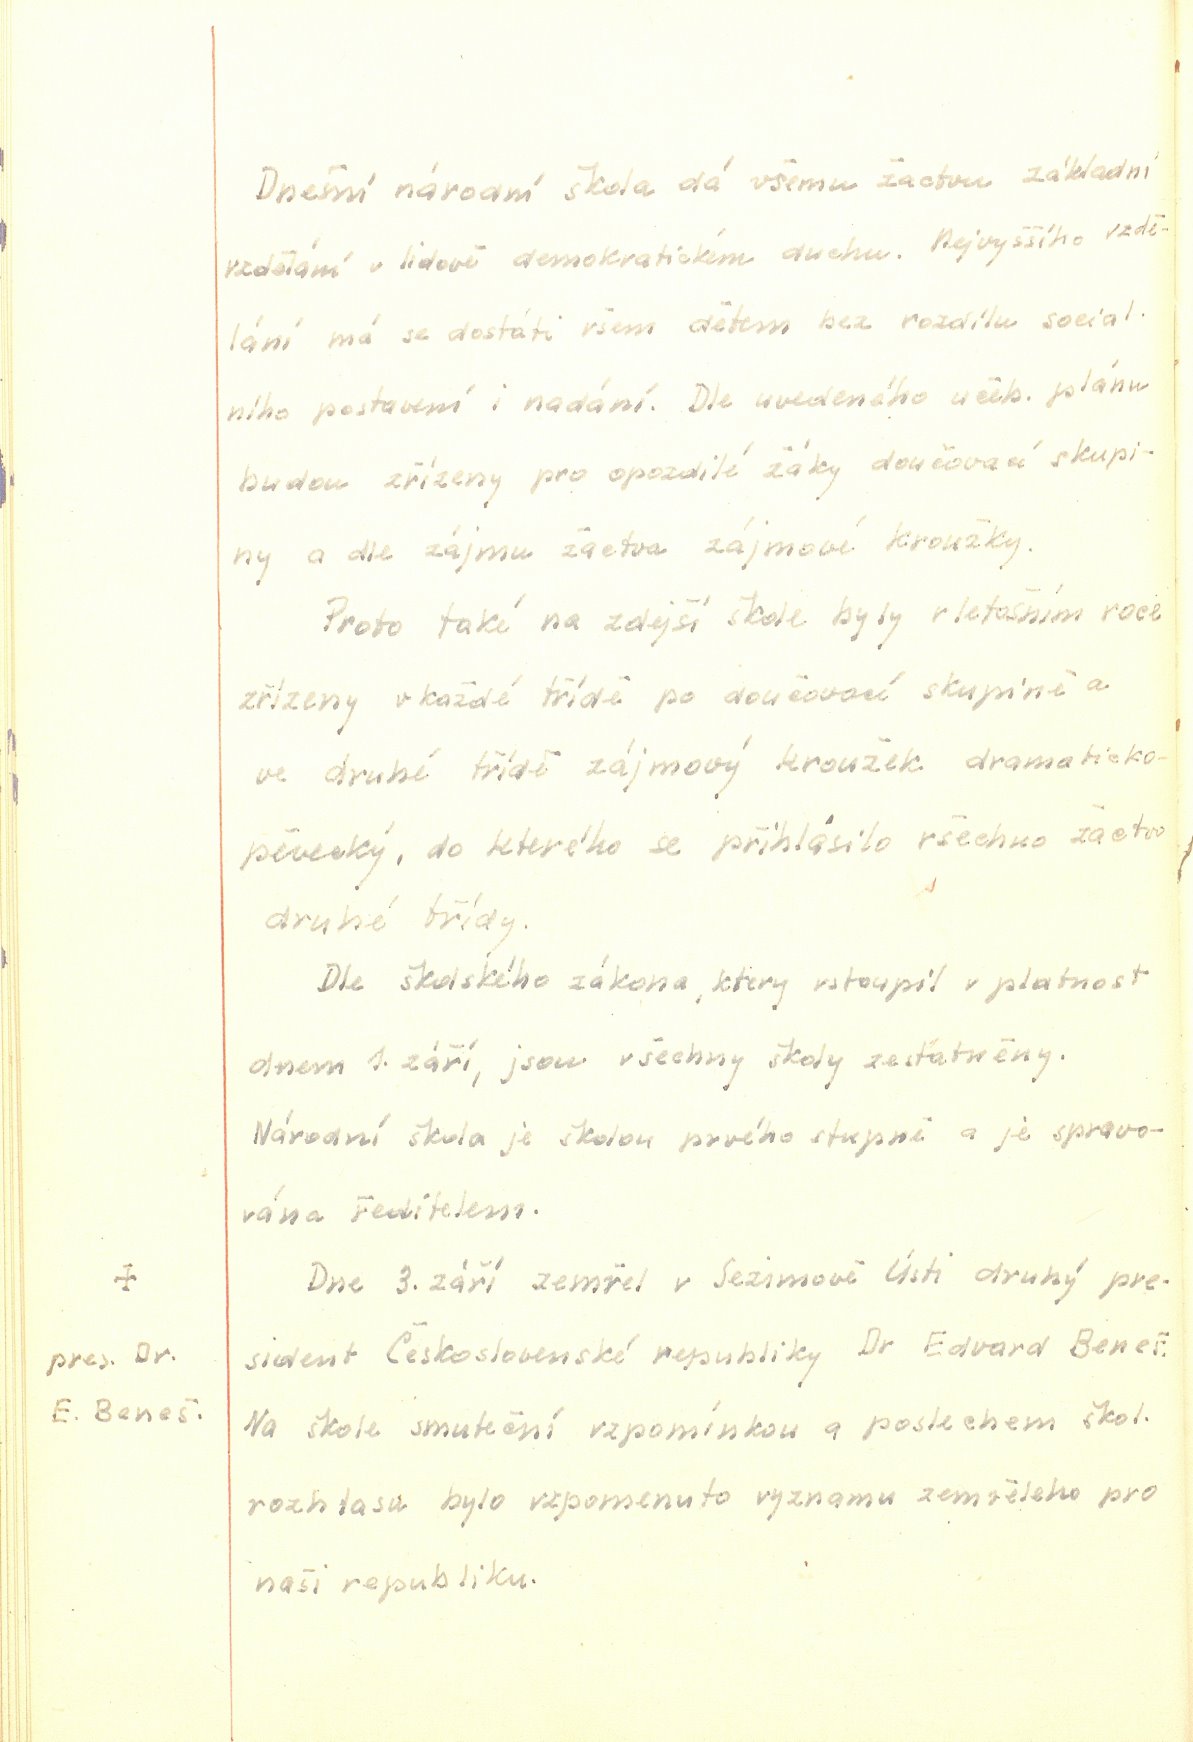 Dnešní národní škola dá všemu žactvu základní
vzdělání v lidově demokratickém duchu. Nejvyššího vzdě-
lání má se dostáti všem dětem bez rozdílu social.
ního postavení i nadání. Dle uvedeného učeb. plánu
budou zřízeny pro opozdilé žáky doučovací skupi-
ny a dle zájmu žactva zájmové kroužky.
Proto také na zdejší škole byly v letošním roce
zřízeny v každé třídě po doučovací skupině a
ve druhé třídě zájmový kroužek dramaticko-
pěvecký, do kterého se přihlásilo všechno žactvo
druhé třídy.
Dle školského zákona, který vstoupil v platnost
dnem 1. září, jsou všechny školy zestátněny.
Národní škola je školou prvého stupně a je spravo-
vána ředitelem.
Dne 3. září zemřel v Sezimově Ústí druhý pre-
sident Československé republiky Dr Edvard Beneš.
Na škole smuteční vzpomínkou a poslechem škol.
rozhlasu bylo vzpomenuto významu zemřelého pro
naši republiku.
✝
pres. Dr.
E. Beneš.